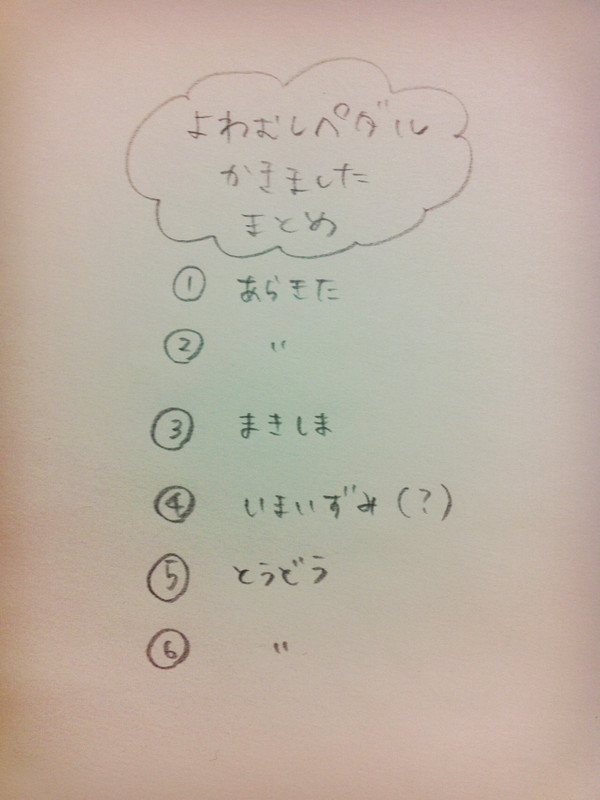 よわむしペダル
かきました
まとめ
① あらきた
② 〃
③ まきしま
④ いまいずみ(?)
⑤ とうどう
⑥ 〃